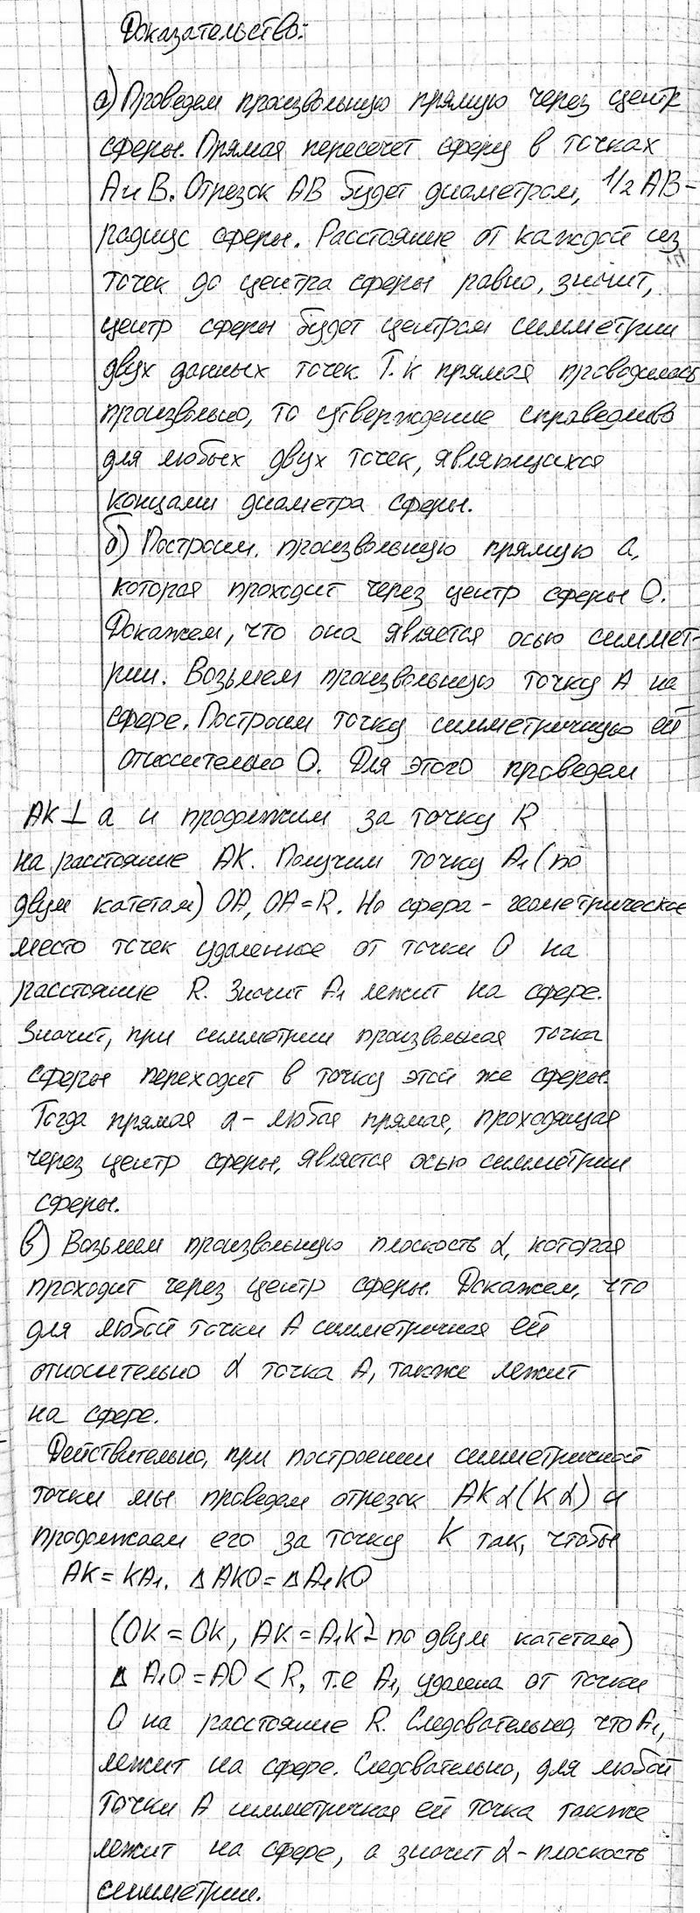 Доказательство:
а) Проведем произвольную прямую через центр
сферы. Прямая пересечет сферу в точках
А и В. Отрезок АВ будет диаметром, 1/2 АВ -
радиус сферы. Расстояние от каждой из
точек до центра сферы равно, значит,
центр сферы будет центром симметрии
двух данных точек. Т.к прямая проводилась
произвольно, то утверждение справедливо
для любых двух точек, являющихся
концами диаметра сферы.
б) Построим произвольную прямую а,
которая проходит через центр сферы О.
Докажем, что она является осью симмет-
рии. Возьмем произвольную точку А на
сфере. Построим точку симметричную ей
относительно О. Для этого проведем
АК⊥ а и продолжим за точку R
на расстояние АК. Получим точку А₁ (по
двум катетам) ОА, ОА = R. Но сфера - геометрическое
место точек удаленное от точки О на
расстояние R. Значит А₁ лежит на сфере.
Значит, при симметрии произвольная точка
сферы переходит в точку этой же сферы.
Тогда прямая а - любая прямая, проходящая
через центр сферы, является осью симметрии
сферы.
в) Возьмем произвольную плоскость α, которая
проходит через центр сферы. Докажем, что
для любой точки А симметричная ей
относительно α точка А, также лежит
на сфере.
Действительно, при построении симметричной
точки мы проведем отрезок АК α (К α) и
продолжаем его за точку К так, чтобы
АК = КА₁. Δ АКО = Δ А₁КО
(ОК = ОК, АК = А₁К - по двум катетам)
Δ А₁О = АО < R, т.е А₁, удалена от точки
О на расстояние R. Следовательно, что А₁,
лежит на сфере. Следовательно, для любой
точки А симметричная ей точка также
лежит на сфере, а значит α - плоскость
симметрии.